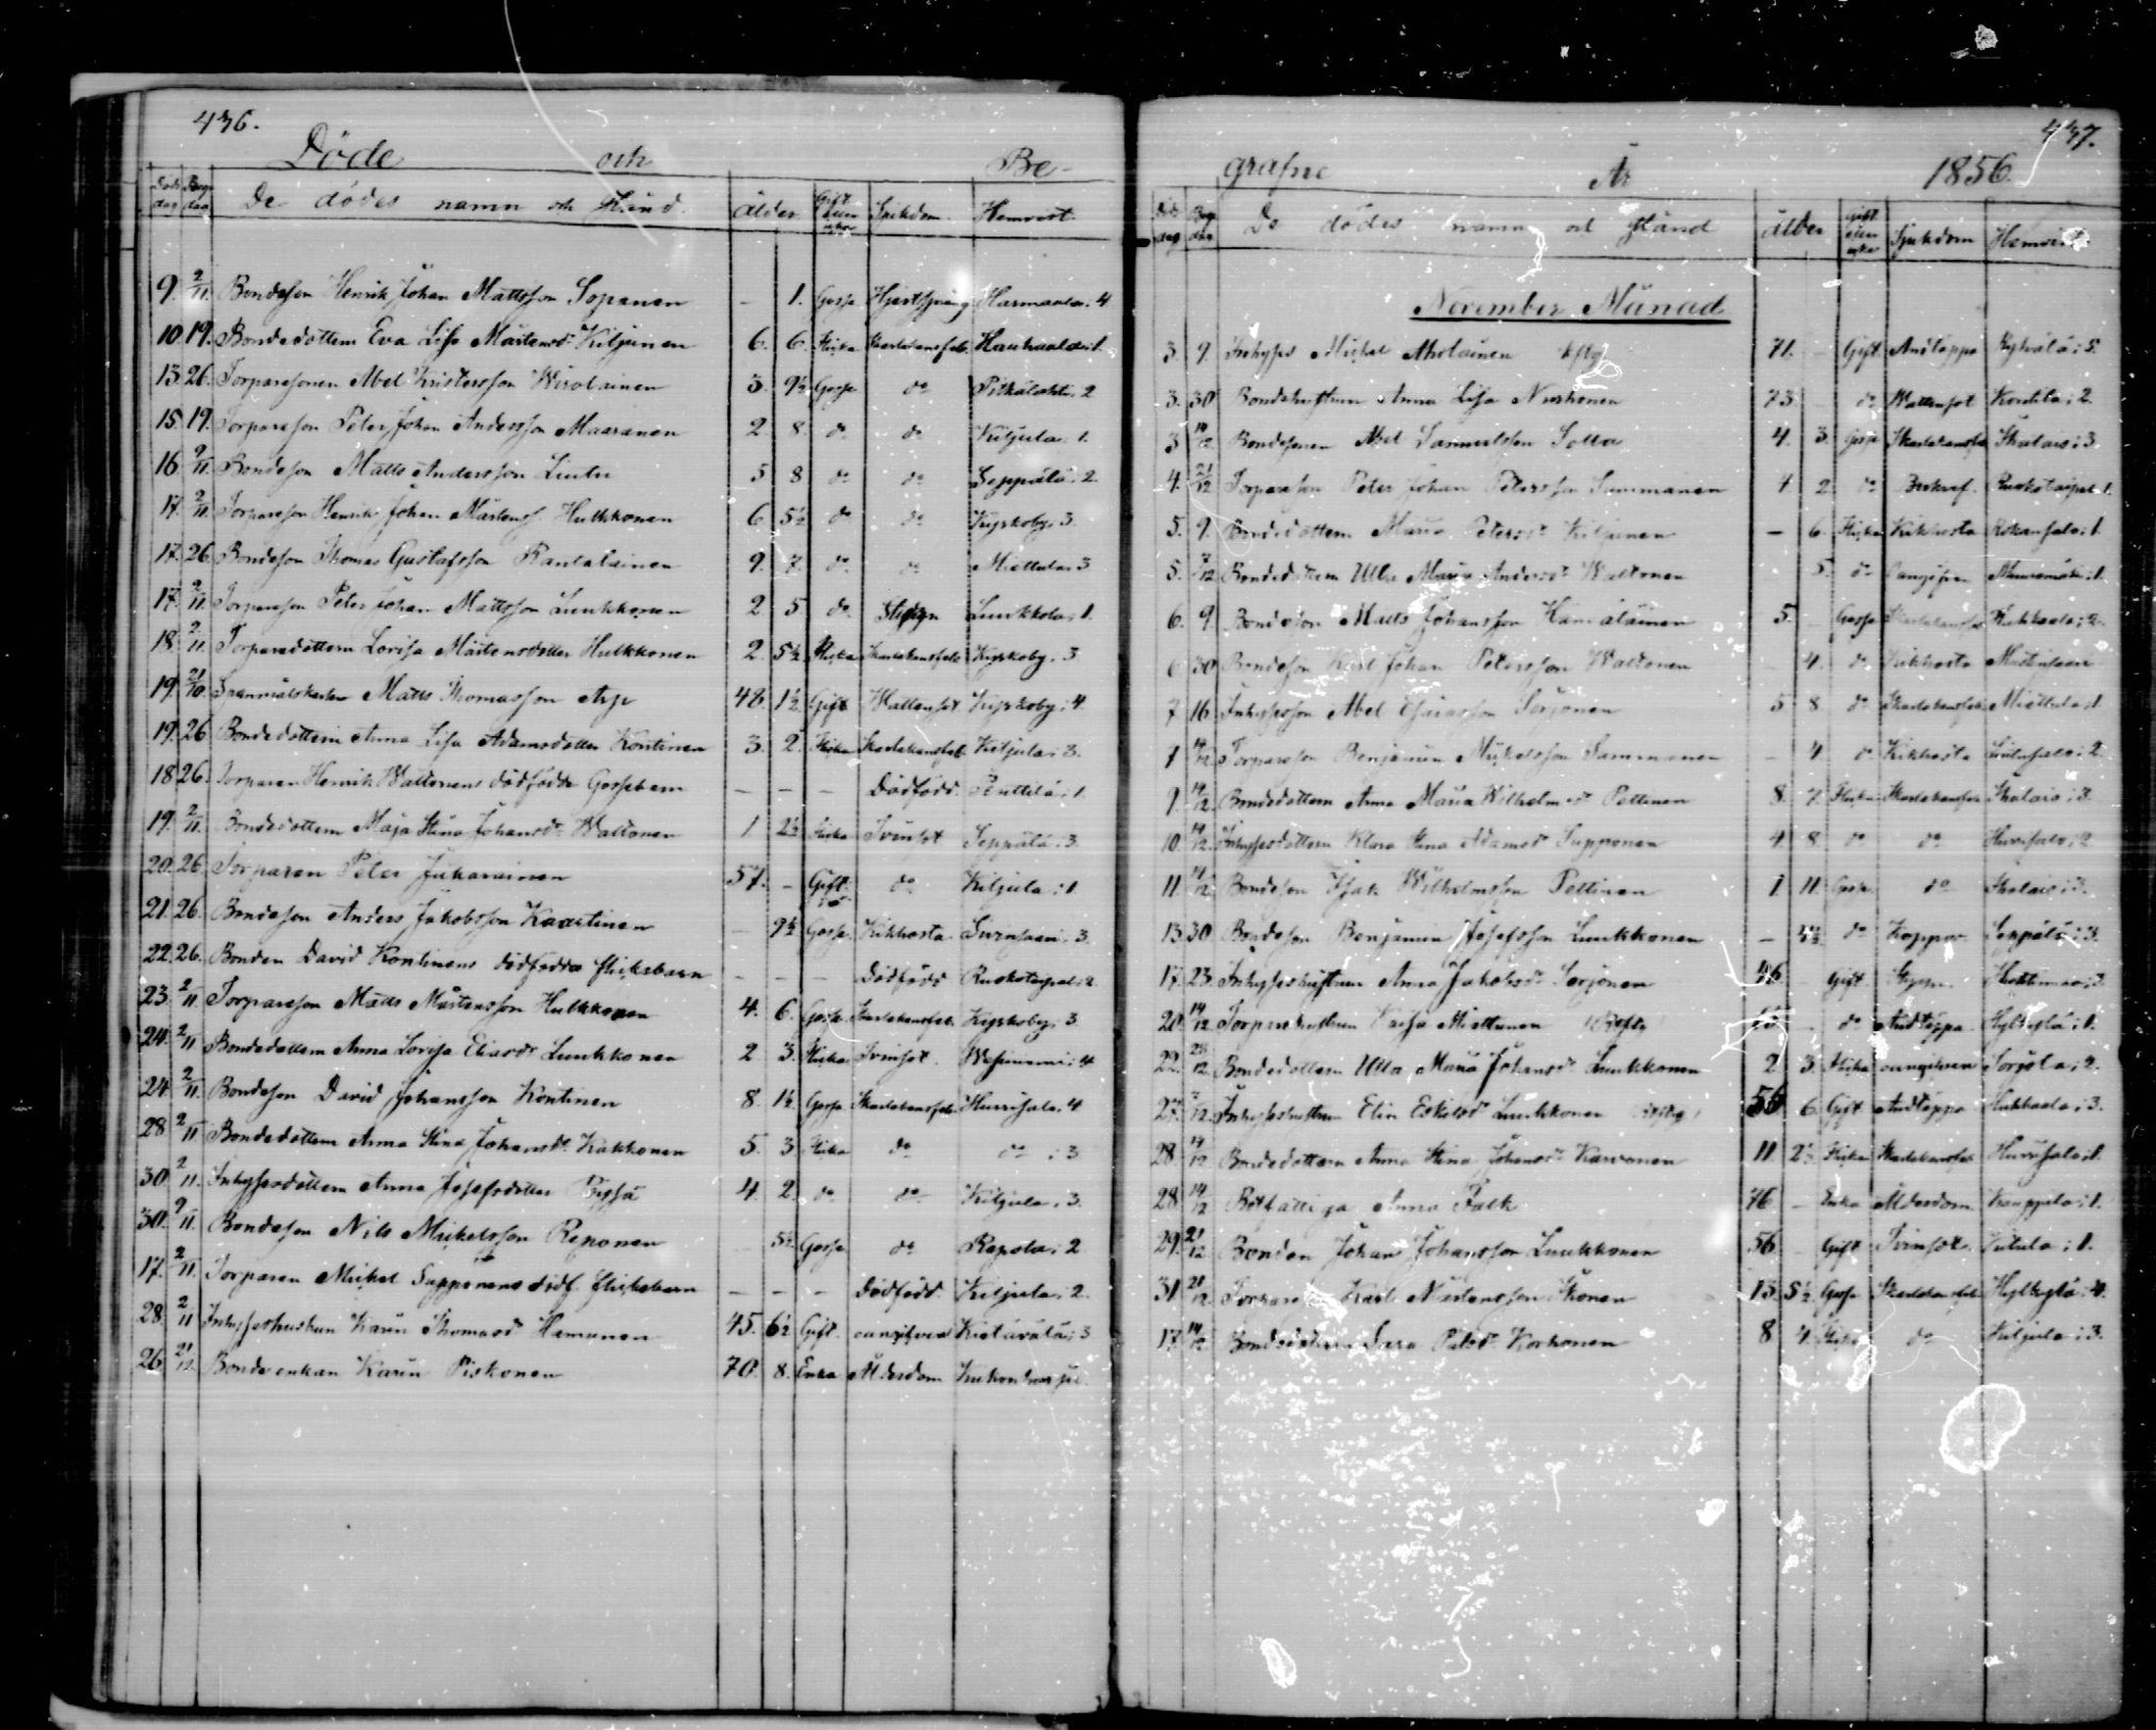 436.
Döde och Be-
Döds dag Begr dag De dödes namn och stånd ålder Gift eller ogift Sjukdom Hemvist
9. 2/11. Bondeson Henrik Johan Mattsson Sopanen – 1. Gosse Hjertsprång Harmaala: 4
10 19. Bondedottern Eva Lisa Mårtensdr Kiljunen 6. 6. Flicka Skarlakansfeb. Haukaala: 1.
13. 26. Torparesonen Abel Kristersson Wirolainen 3. 9½ Gosse do Pitkälaht: 2
15. 19. Torpareson Peter Johan Andersson Maaranen 2 8. do do Kiljula. 1.
16. 2/11. Bondeson Matts Andersson Lintu 5 8 do do Seppälä. 2.
17. 2/11. Torpareson Henrik Johan Mårtenss. Hulkkonen 6 5½ do do Kyrkoby. 3.
17. 26 Bondeson Thomas Gustafsson Rantalainen 9. 7. do do Miettula: 3
17. 2/11. Torpareson Peter Johan Mattsson Luukkonen 2 5 do Luukkola: 1.
18. 2/11. Torparedottern Lovisa Mårtensdotter Hulkkonen 2. 5½ Flicka Skarlakansfeb. Kyrkoby. 3
19. 21/10. Matts Thomasson 48. 1½ Gift Wattensot Kyrkoby: 4.
19. 26 Bondedottern Anna Lisa Adamsdotter Kontinen 3. 2. Flicka Skarlakansfeb. Kiljula: 3.
18 26. Torparen Henrik Waltonens dödfödde Gossebarn – – – Dödfödd. Penttilä: 1.
19. 2/11. Bondedottern Maja Stina Johansdr Waltonen 1 2½ Flicka Tvinsot Seppälä. 3.
20. 26. Torparen Peter Jukarainen 57. – Gift do Kiljula: 1
21. 26. Bondeson Anders Jakobsson Kaartinen – 9½ Gosse Kikhosta 3.
22. 26. Bonden David Kontinens dödfödda flickebarn – – – Dödfödd Ruokotaipal: 2.
23. 2/11. Torpareson Matts Mårtensson Hulkkonen 4. 6. Gosse Skarlakansfeb. Kyrkoby: 3.
24. 2/11 Bondedottern Anna Lovisa Eliasdr Luukkonen 2 3. Flicka Tvinsot. Wehmaini: 4
24 2/11. Bondeson David Johansson Kontinen 8. 1½ Gosse Skarlakansfeb. Hurrisalo. 4
28. 2/11 Bondedottern Anna Stina Johansdr Kakkonen 5. 3 Flicka do do : 3
30 2/11. Inhysesdottern Anna Josefsdotter Pöyhiä 4. 2. do do Kiljula. 3.
30. 9/11. Bondeson Nils Mickelsson Reponen 5½ Gosse do Rapola: 2
17. 2/11. Torparen Mickel Supponens dödf. flickebarn – – – Dödfödd. Kiljula: 2.
28. 2/11 Inhyseshustrun Karin Thomasdr Hämänen 45. 6½ Gift. oangifven Kietävälä: 3
26 21/12. Bondeenkan Karin Piskonen 70. 8. Enka Ålderdom
437.
grafne År 1856.
Döds dag Begr dag De dödes namn och stånd ålder Gift eller ogift Sjukdom Hemvist
November Månad
3. 9. Inhyses Mickel Aholainen 71. – Gift Andtäppa 5.
3. 30 Bondehustrun Anna Lisa Nuskonen 73 – do Wattensot Kontila: 2.
3 14/12 Bondesonen Abel Samuelsson Solla 4. 3. Gosse Skarlakansfeb. Skalais: 3.
4. 21/12 Torpareson Peter Johan Petersson Sammanen 4 2 do Ruokotaipal. 1.
5. 9. Bondedottern Maria Petersdr Kiljunen – 6. Flicka Kikhosta Rokansalo: 1.
5. 7/12 Bondedottern Ulla Maria Andersdr Waltonen 5. do oangifven 1.
6. 9 Bondeson Matts Johansson Hämäläinen 5. – Gosse Skarlakansfeb. Haukaala: 2.
6 30 Bondeson Karl Johan Petersson Waltonen – 4. do Kikhosta
7 16. Inhysesson Abel Esaiasson Sorjonen 5 8 do Skarlakansfeb. Miettula: 1.
14/12 Torpareson Benjamin Mickelsson Sammanen – 4 do Kikhosta Lintusalo: 2.
9. 14/12 Bondedottern Anna Maria Wilhelmsdr Pettinen 8. 7. Flicka Skarlakansfeb Skalais: 3.
10. 14/12. Inhysesdottern Klara Stina Adamsdr Supponen 4 8. do do Hurrisalo: 2
11. 14/12 Bondeson Isak Wilhelmsson Pettinen 1 11. Gosse do Skalais: 3.
13. 30. Bondeson Benjamin Josefsson Luukkonen – 4½ do Koppor Seppälä: 3.
17. 23. Inhyseshustrun Anna Jakobsdr Sorjonen 46. – Gift 3.
20. 14/12 Torparehustrun Kaisa Miettunen – do Andtäppa Hylkylä: 1.
22. 28/12. Bondedottern Ulla Maria Johansdr Luukkonen 2 3. Flicka oangifven Sorjola: 2.
27. 7/12. Inhyseshustrun Elin Eskilsdr Luukkonen 55 6. Gift Andtäppa Haukaala: 3.
28. 14/12 Bondedottern Anna Stina Johansdr Karvonen 11 2½ Flicka Skarlakansfeb. Hurrisalo: 1.
28 14/12 Rotfattiga Anna Falk 76 – Enka Ålderdom Kauppila: 1.
29. 21/12 Bonden Johan Johansson Luukkonen 56 – Gift Tvinsot. Kitula: 1.
31. 21/12. Torpareson Karl Mårtensson Ikonen 13 5½ Gosse Skarlakansfeb. Hylkylä: 4.
17. 14/12 Bondedottern Sara Palsdr Korhonen 8 4 Flicka do Kiljula: 3.